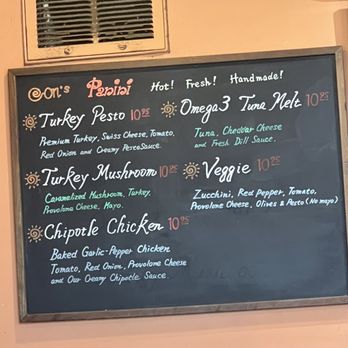 e-on's Panini Hot! Fresh! Handmade!
Turkey Pesto 10.95
Premium Turkey, Swiss Cheese, Tomato,
Red Onion and Creamy Pesto Sauce.
Omega3 Tuna Melt 10.95
Tuna, Cheddar Cheese
and Fresh Dill Sauce.
Turkey Mushroom 10.95
Caramelized Mushroom, Turkey,
Provolone Cheese, Mayo.
Veggie 10.95
Zucchini, Red Pepper, Tomato,
Provolone Cheese, Olives & Pesto (No mayo)
Chipotle Chicken 10.95
Baked Garlic-Pepper Chicken
Tomato, Red Onion, Provolone Cheese
and Our Creamy Chipotle Sauce.